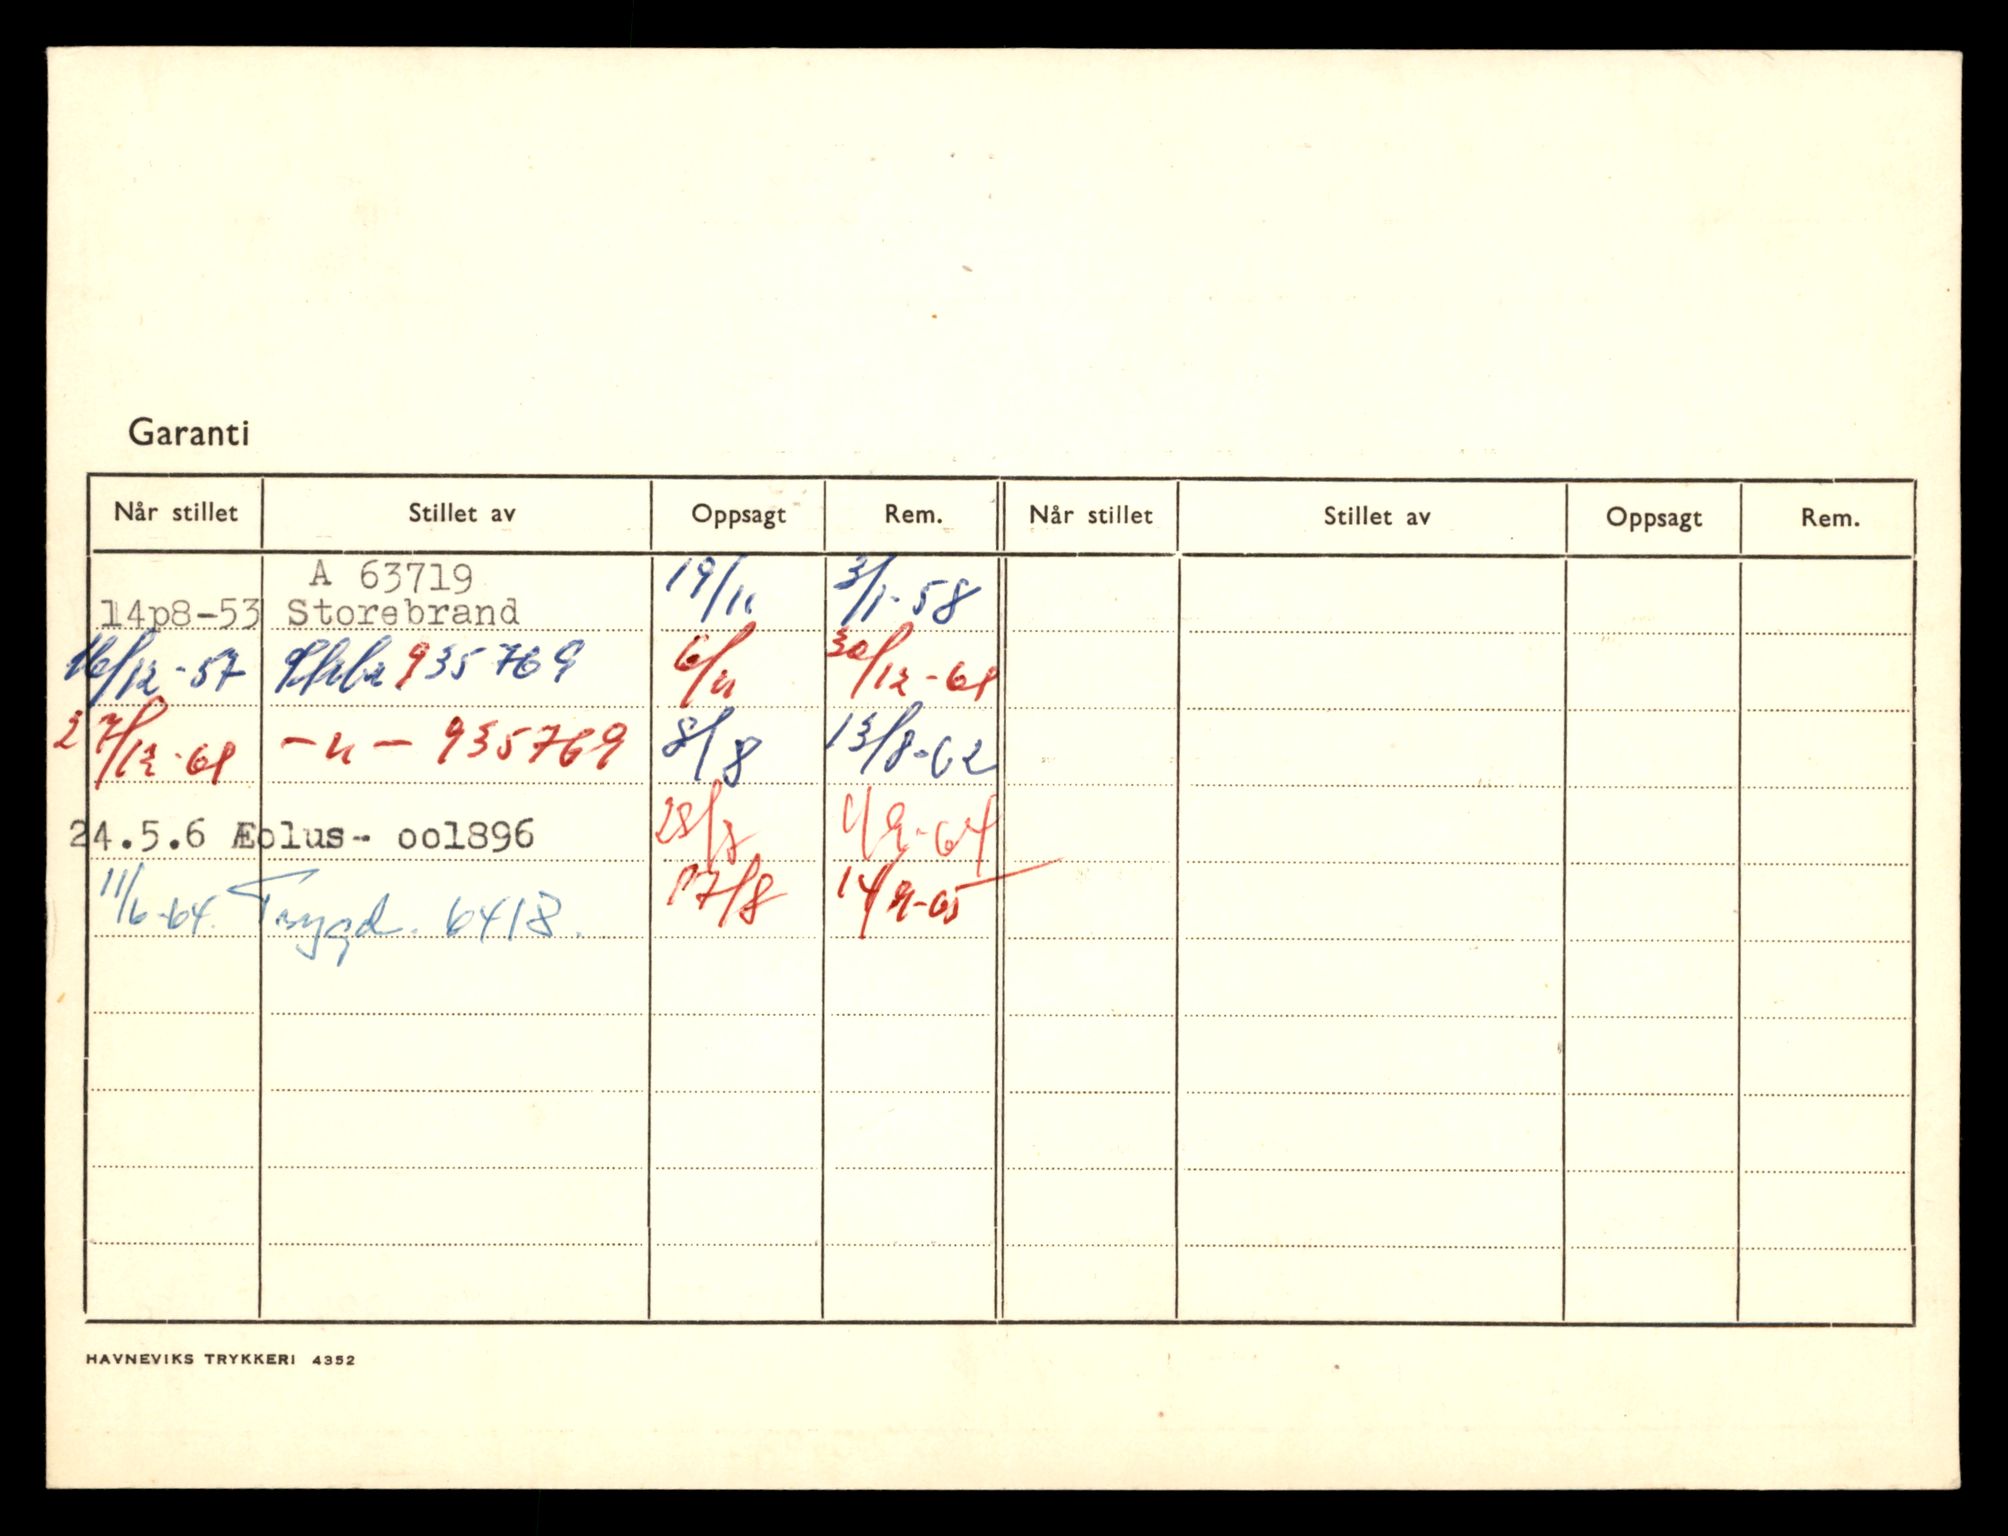 Garanti
Når stillet Stillet av Oppsagt Rem. Når stillet Stillet av Oppsagt Rem.
A 63719
14p8-53 Storebrand 19/11 3/1-58
16/12-57 935769 6/11 30/12-61
27/12-61 -"- 935769 8/8 13/8-62
24.5.6 Æolus- oo1896 28/8 1/9-64
11/6-64. Trygd. 6418. 17/8 14/9-65
HAVNEVIKS TRYKKERI 4352